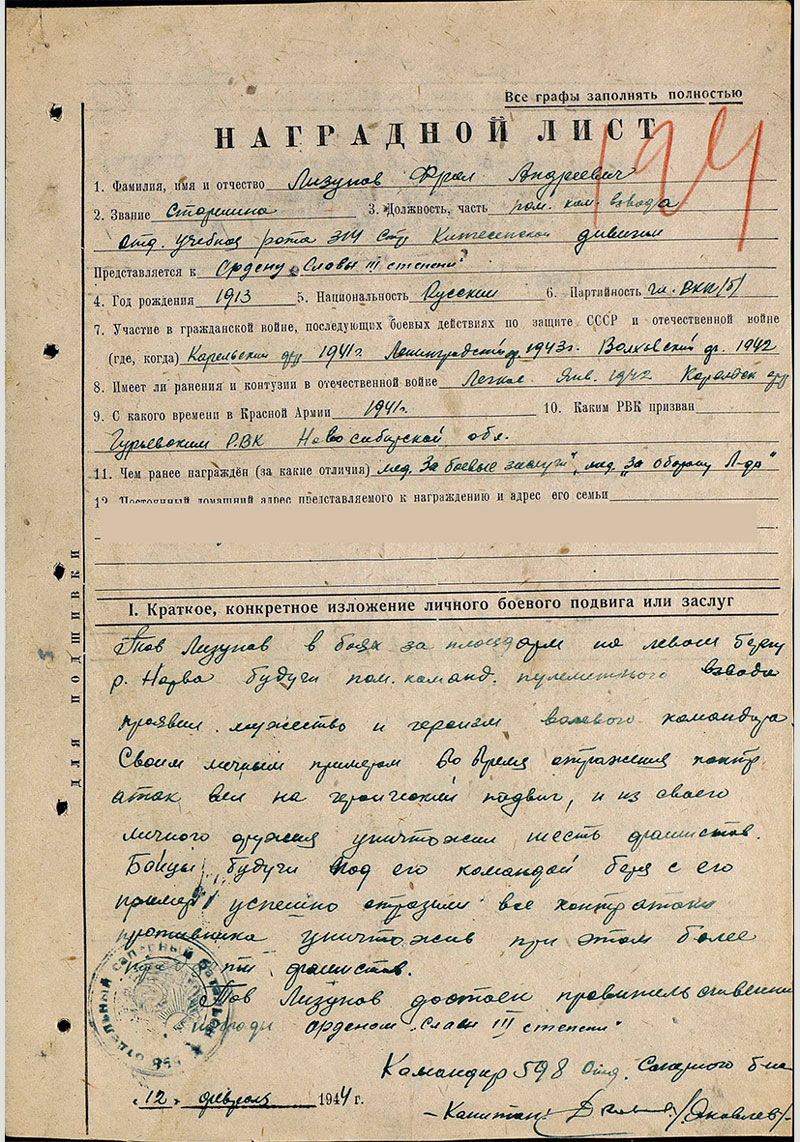 Все графы заполнять полностью
НАГРАДНОЙ ЛИСТ
1. Фамилия, имя и отчество Лизунов Фрол Андреевич
2. Звание Старшина 3. Должность, часть пом. ком. взвода
отд. учебная рота 314 Стр Кингсепской дивизии
Представляется к Ордену „Славы III степени"
4. Год рождения 1913 5. Национальность Русский 6. Партийность чл. ВКП/б/
7. Участие в гражданской войне, последующих боевых действиях по защите СССР и отечественной войне
(где, когда) Карельский фр 1941г. Ленинградский ф. 1943г. Волховский фр. 1942
8. Имеет ли ранения и контузии в отечественной войне Легкое Янв. 1942
9. С какого времени в Красной Армии 1941г. 10. Каким РВК призван
Гурьевским РВК Новосибирской обл.
11. Чем ранее награждён (за какие отличия) мед. За боевые заслуги", мед. „За оборону Л-да"
12 Постоянный домашний адрес представляемого к награждению и адрес его семьи
I. Краткое, конкретное изложение личного боевого подвига или заслуг
Тов Лизунов в боях за плацдарм на левом берегу
р. Нарва будучи пом. команд. пулеметного взвода
проявил мужество и героизм волевого командира.
Своим личным примером во время отражения контр
атак вел на героический подвиг, и из своего
личного оружия уничтожил шесть фашистов.
Бойцы, будучи под его командой беря с его
пример успешно отразили все контратаки
противника уничтожив при этом более
фашистов.
Тов Лизунов достоен правительственной
награды орденом „Славы III степени"
Командир 598 Отд. Саперного б-на
„12" февраля 1944 г.
- Капитан /Яковлев/-
ДЛЯ ПОДШИВКИ
отдельный саперный батальон 598